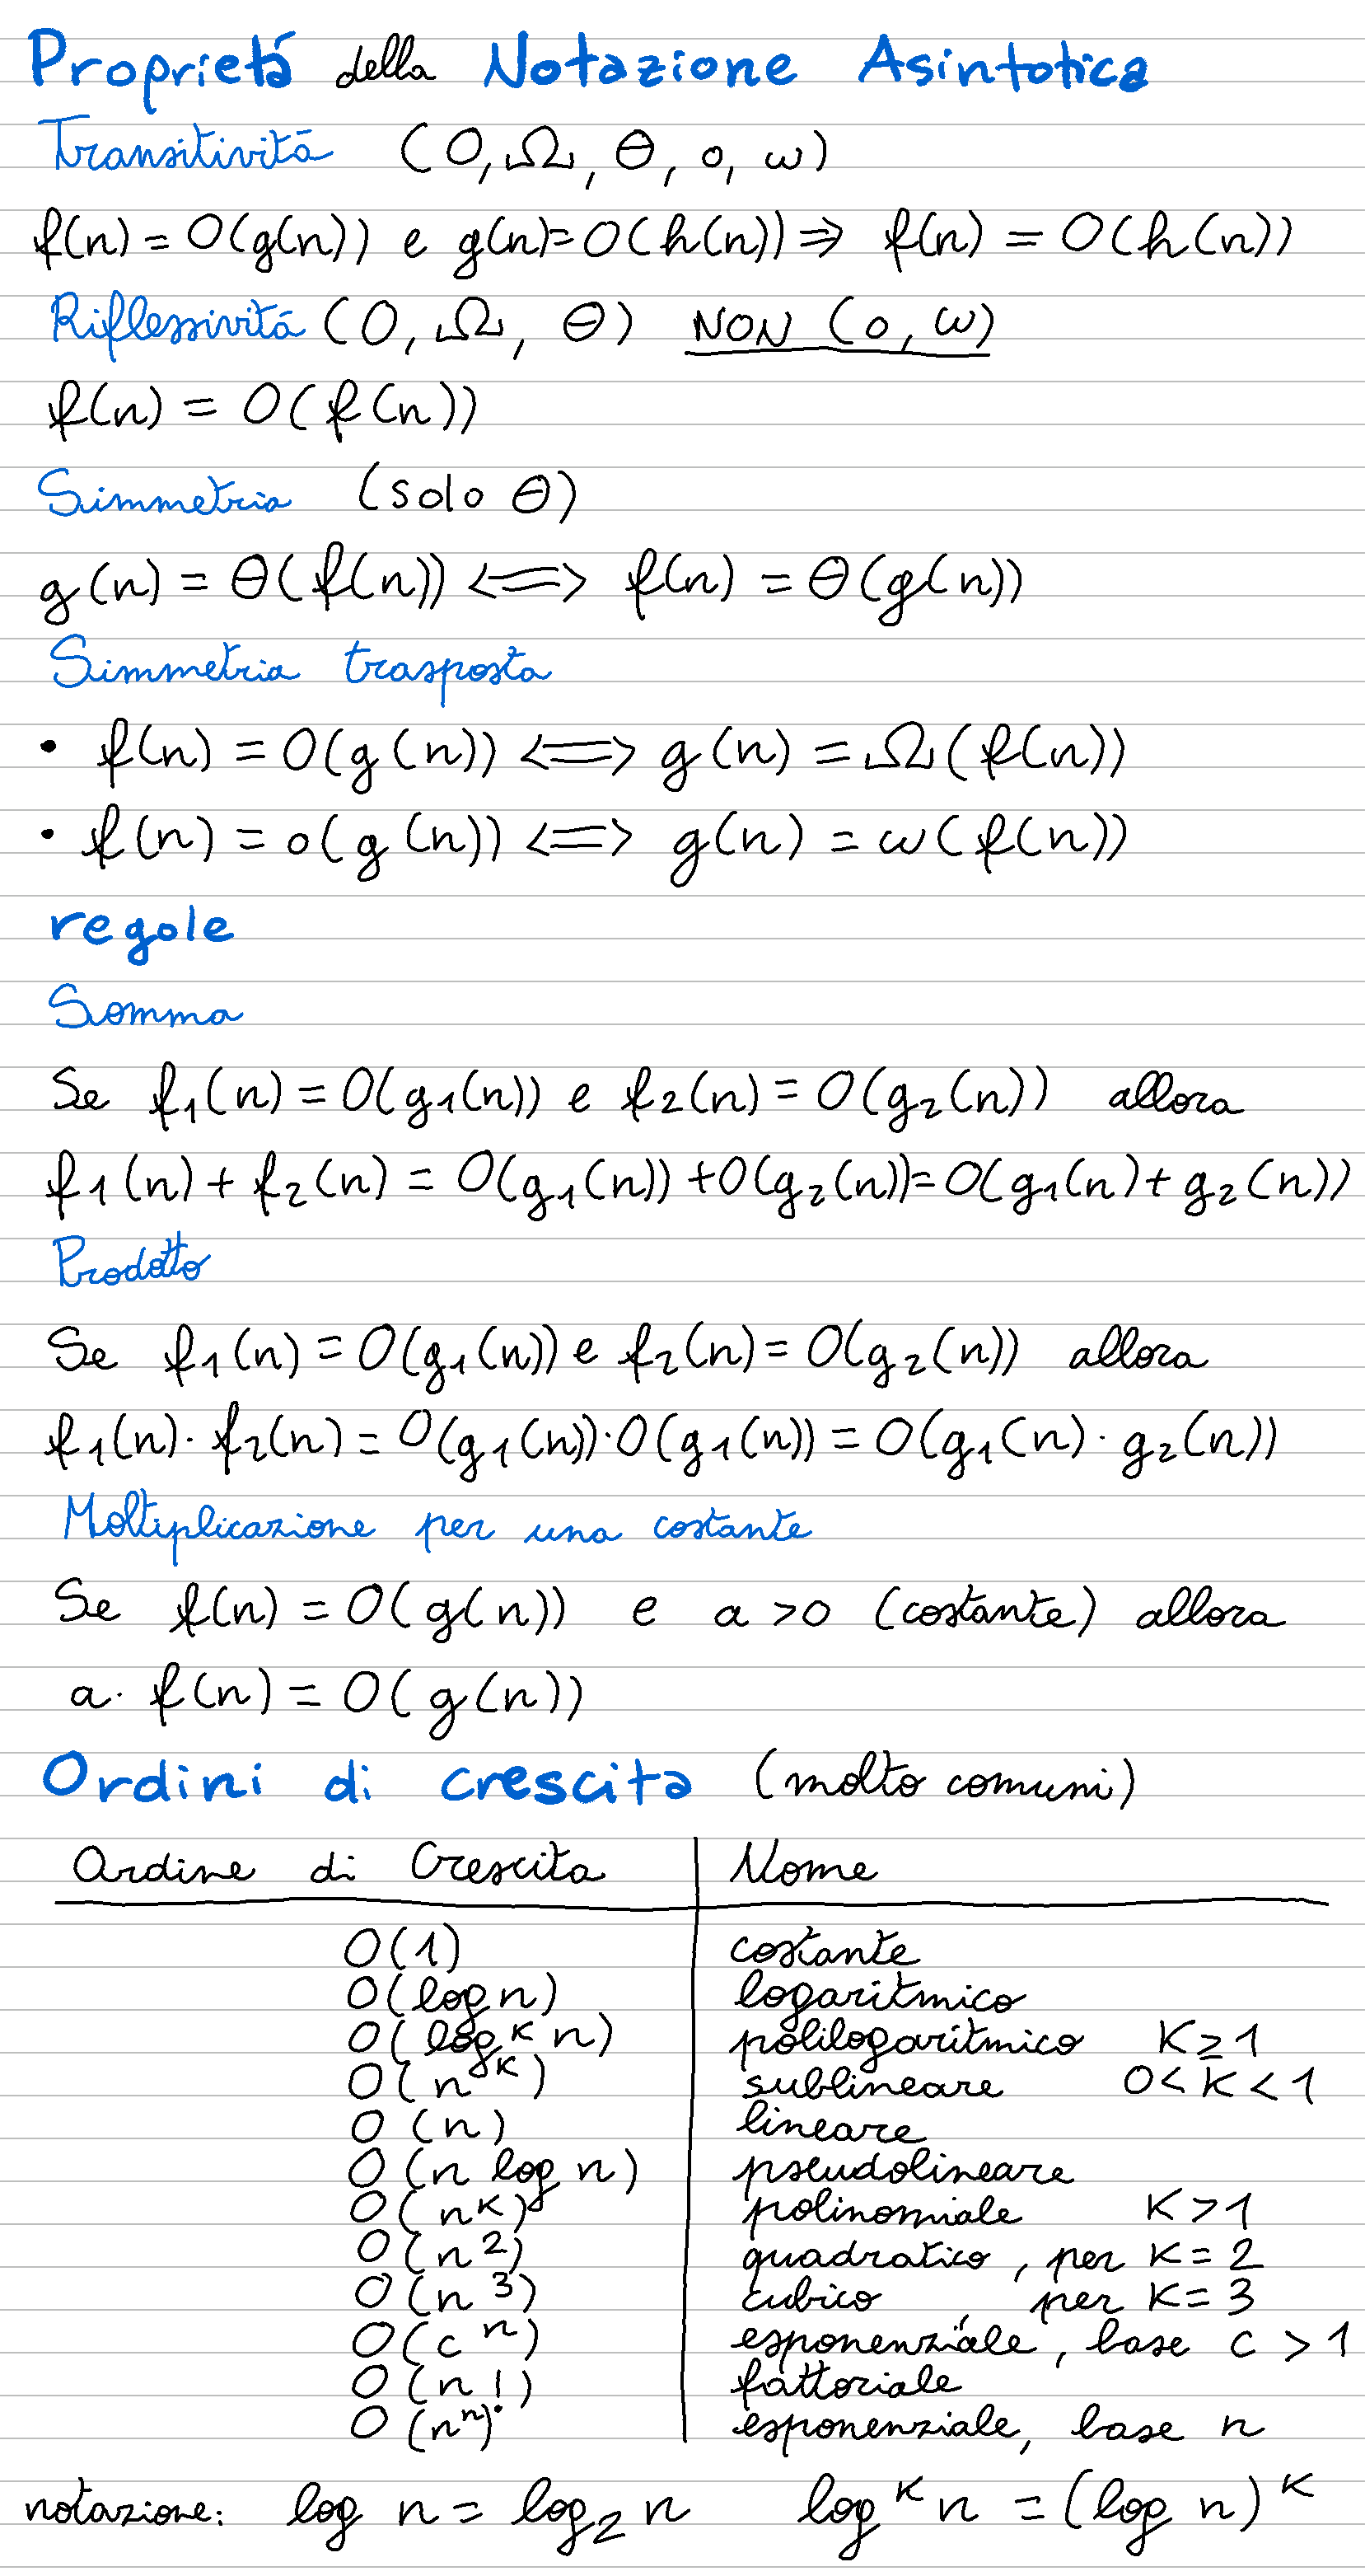 Proprietá della Notazione Asintotica
Transitivitá (O, Ω, θ, o, ω)
f(n) = O(g(n)) e g(n) = O(h(n)) ⇒ f(n) = O(h(n))
Riflessivitá (O, Ω, θ) NON (o, ω)
f(n) = O(f(n))
Simmetria (solo θ)
g(n) = θ(f(n)) <=> f(n) = θ(g(n))
Simmetria trasposta
• f(n) = O(g(n)) <=> g(n) = Ω(f(n))
• f(n) = o(g(n)) <=> g(n) = ω(f(n))
regole
Somma
Se f₁(n) = O(g₁(n)) e f₂(n) = O(g₂(n)) allora
f₁(n) + f₂(n) = O(g₁(n)) + O(g₂(n)) = O(g₁(n) + g₂(n))
Prodotto
Se f₁(n) = O(g₁(n)) e f₂(n) = O(g₂(n)) allora
f₁(n) · f₂(n) = O(g₁(n)) · O(g₁(n)) = O(g₁(n) · g₂(n))
Moltiplicazione per una costante
Se f(n) = O(g(n)) e a > 0 (costante) allora
a · f(n) = O(g(n))
Ordini di crescita (molto comuni)
Ordine di Crescita | Nome
O(1) costante
O(log n) logaritmico
O(log^K n) polilogaritmico K ≥ 1
O(n^K) sublineare 0 < K < 1
O(n) lineare
O(n log n) pseudolineare
O(n^K) polinomiale K > 1
O(n²) quadratico, per K = 2
O(n³) cubico per K = 3
O(c^n) esponenziale, base c > 1
O(n!) fattoriale
O(n^n) esponenziale, base n
notazione: log n = log₂ n log^K n = (log n)^K